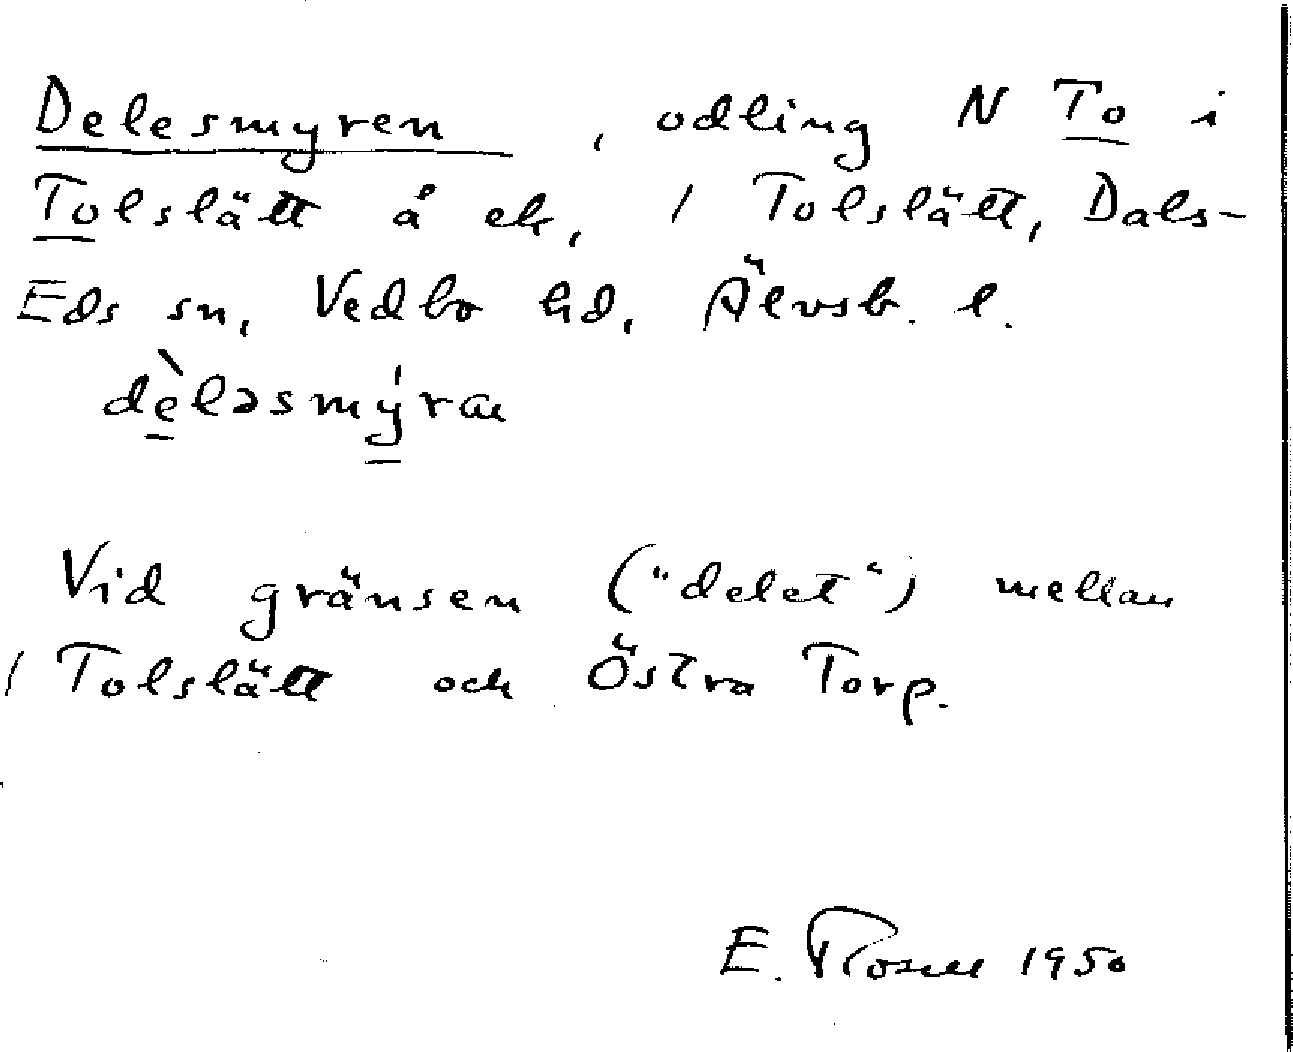 Delesmyren, odling N To i
Tolslätt å ek, / Tolslätt, Dals-
Eds sn, Vedbo hd, Älvsb. l.
dèləsmýra
Vid gränsen ("delet") mellan
/ Tolslätt och Östra Torp.
E. Rosell 1950